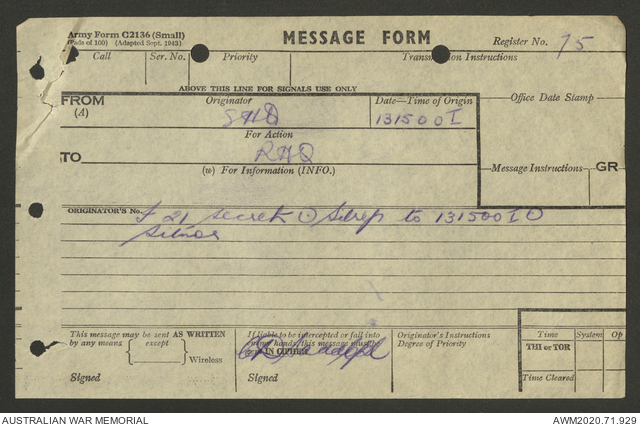 Army Form C2136 (Small)
(Pads of 100) (Adapted Sept. 1943)
MESSAGE FORM
Register No. 75
Call
Ser. No.
Priority
Instructions
ABOVE THIS LINE FOR SIGNALS USE ONLY
FROM
(A)
Originator
Date—Time of Origin
131500I
Office Date Stamp
For Action
TO
RHQ
(w) For Information (INFO.)
Message Instructions
GR
ORIGINATOR'S No.
21 secret ⊙ Sitrep to 131500I ⊙
This message may be sent AS WRITTEN
by any means except
Wireless
Signed
If liable to be intercepted or fall into
hands, this message must be
IN CIPHER
Signed
Originator's Instructions
Degree of Priority
Time
System
Op
THI or TOR
Time Cleared
AUSTRALIAN WAR MEMORIAL
AWM2020.71.929